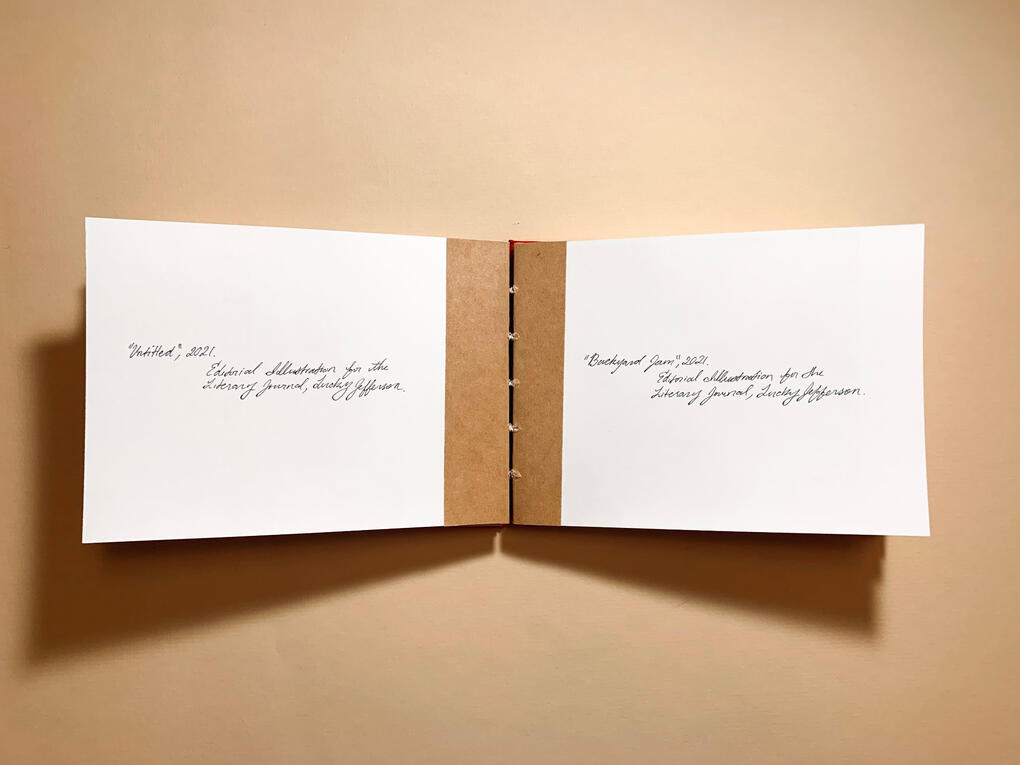 "Untitled", 2021.
Editorial Illustration for the
Literary Journal, Lucky Jefferson.
"Backyard Jam", 2021.
Editorial Illustration for the
Literary Journal, Lucky Jefferson.